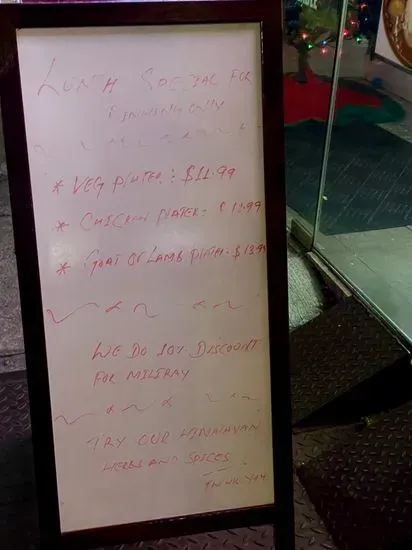 LUNCH SPECIAL FOR
DINNING ONLY
* VEG PLATER : $11.99
* CHICKEN PLATER - $12.99
* GOAT OR LAMB PLATER - $13.99
WE DO 10% DISCOUNT
FOR MILITRAY
TRY OUR HIMALAYAN
HERBS AND SPICES
THANK YOU